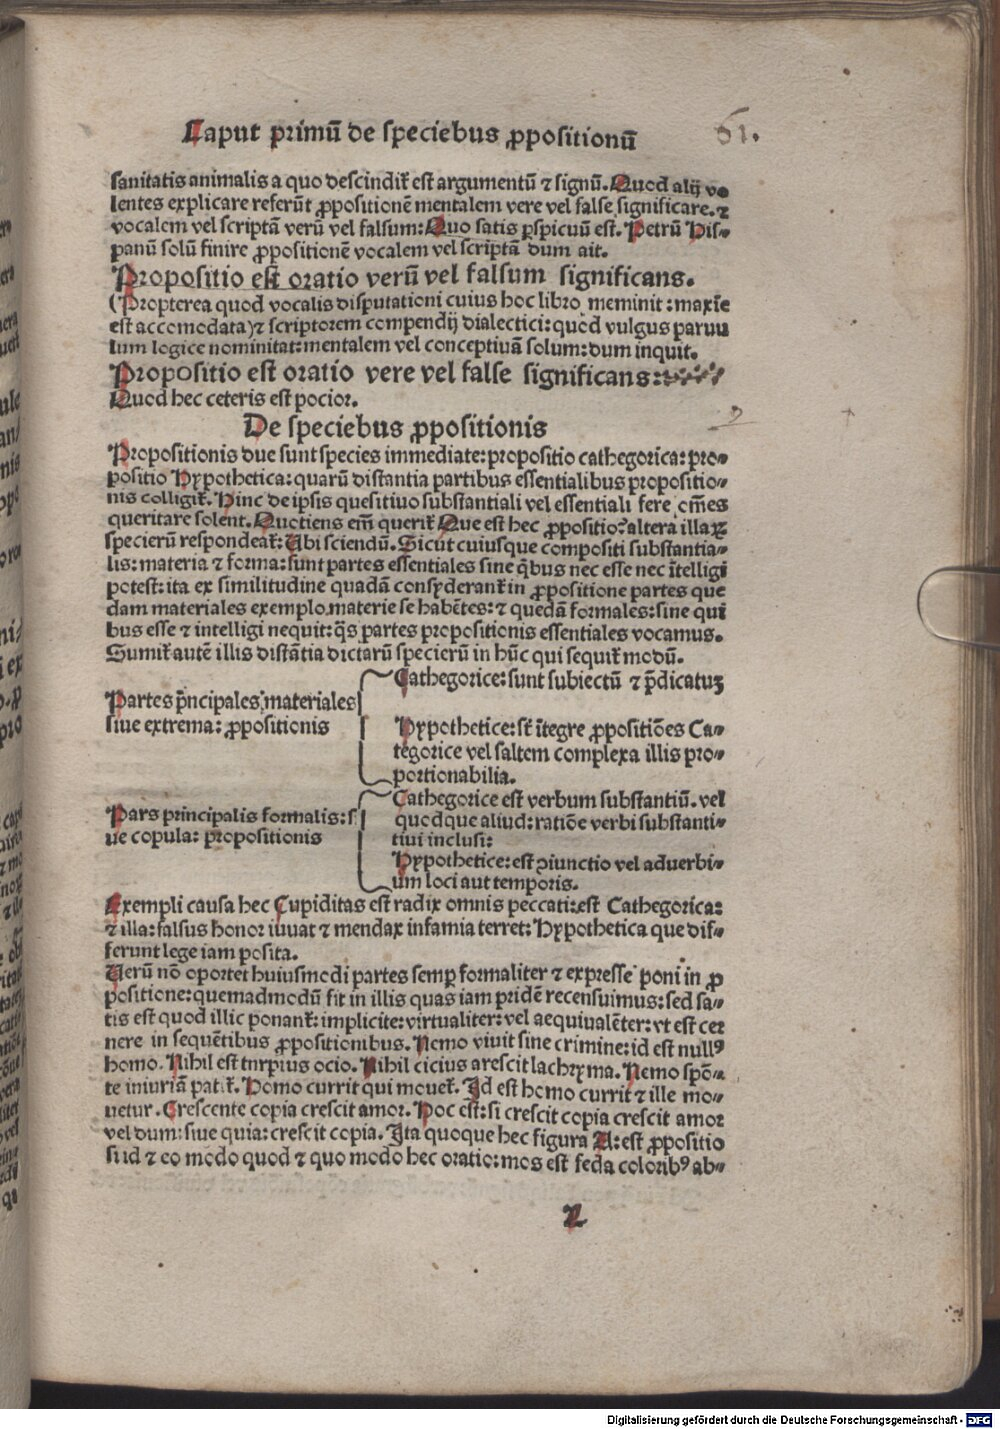 Caput primū de speciebus ꝓpositionū
61.
sanitatis animalis a quo descindit̃ est argumentū ⁊ signū. Quod alij vo⸗
lentes explicare referūt ꝓpositionē mentalem vere vel false significare. ⁊
vocalem vel scriptā verū vel falsum: Quo satis ꝑspicuū est. Petrū His⸗
panū solū finire ꝓpositionē vocalem vel scriptā dum ait.
Propositio est oratio verū vel falsum significans.
(Propterea quod vocalis disputationi cuius hoc libro meminit: maxīe
est accomodata) ⁊ scriptorem compendij dialectici: quod vulgus paruu
lum logice nominitat: mentalem vel conceptiuā solum: dum inquit.
Propositio est oratio vere vel false significans:
Quod hec ceteris est pocior.
De speciebus ꝓpositionis
Propositionis due sunt species immediate: propositio cathegorica: pro⸗
positio Hypothetica: quarū distantia partibus essentialibus propositio⸗
nis colligit̃. Hinc de ipsis quesitiuo substantiali vel essentiali fere om̄es
queritare solent. Quotiens em̄ querit̃ Que est hec ꝓpositio? altera illaꝝ
specierū respondeat̃: Ubi sciendū. Sicut cuiusque compositi substantia⸗
lis: materia ⁊ forma: sunt partes essentiales sine q̄bus nec esse nec ītelligi
potest: ita ex similitudine quadā consyderant̃ in ꝓpositione partes que
dam materiales exemplo materie se habētes: ⁊ quedā formales: sine qui
bus esse ⁊ intelligi nequit: q̄s partes propositionis essentiales vocamus.
Sumit̃ autē illis distātia dictarū specierū in hūc qui sequit̃ modū.
Cathegorice: sunt subiectū ⁊ p̄dicatuꝫ
Partes p̄ncipales materiales
siue extrema: ꝓpositionis
Hypothetice: st̄ ītegre ꝓpositiōes Ca⸗
tegorice vel saltem complexa illis pro⸗
portionabilia.
Cathegorice est verbum substantiū. vel
Pars principalis formalis: s
quodque aliud: ratiōe verbi substanti⸗
ue copula: propositionis
tiui inclusi:
Hypothetice: est ꝯiunctio vel aduerbi⸗
um loci aut temporis.
Exempli causa hec Cupiditas est radix omnis peccati: est Cathegorica:
⁊ illa: falsus honor iuuat ⁊ mendax infamia terret: Hypothetica que dif⸗
ferunt lege iam posita.
Uerū nō oportet huiusmodi partes semꝑ formaliter ⁊ expresse poni in ꝓ
positione: quemadmodū fit in illis quas iam pridē recensuimus: sed sa⸗
tis est quod illic ponant̃: implicite: virtualiter: vel aequiualēter: vt est cer
nere in sequētibus ꝓpositionibus. Nemo viuit sine crimine: id est nullꝰ
homo. Nihil est tnrpius ocio. Nihil cicius arescit lachryma. Nemo spōⸯ
te iniuriā patit̃. Homo currit qui mouet̃. Id est homo currit ⁊ ille mo⸗
uetur. Crescente copia crescit amor. Hoc est: si crescit copia crescit amor
vel dum: siue quia: crescit copia. Ita quoque hec figura A: est ꝓpositio
si id ⁊ eo modo quod ⁊ quo modo hec oratio: mos est feda coloribꝰ ab⸗
Digitalisierung gefördert durch die Deutsche Forschungsgemeinschaft - DFG